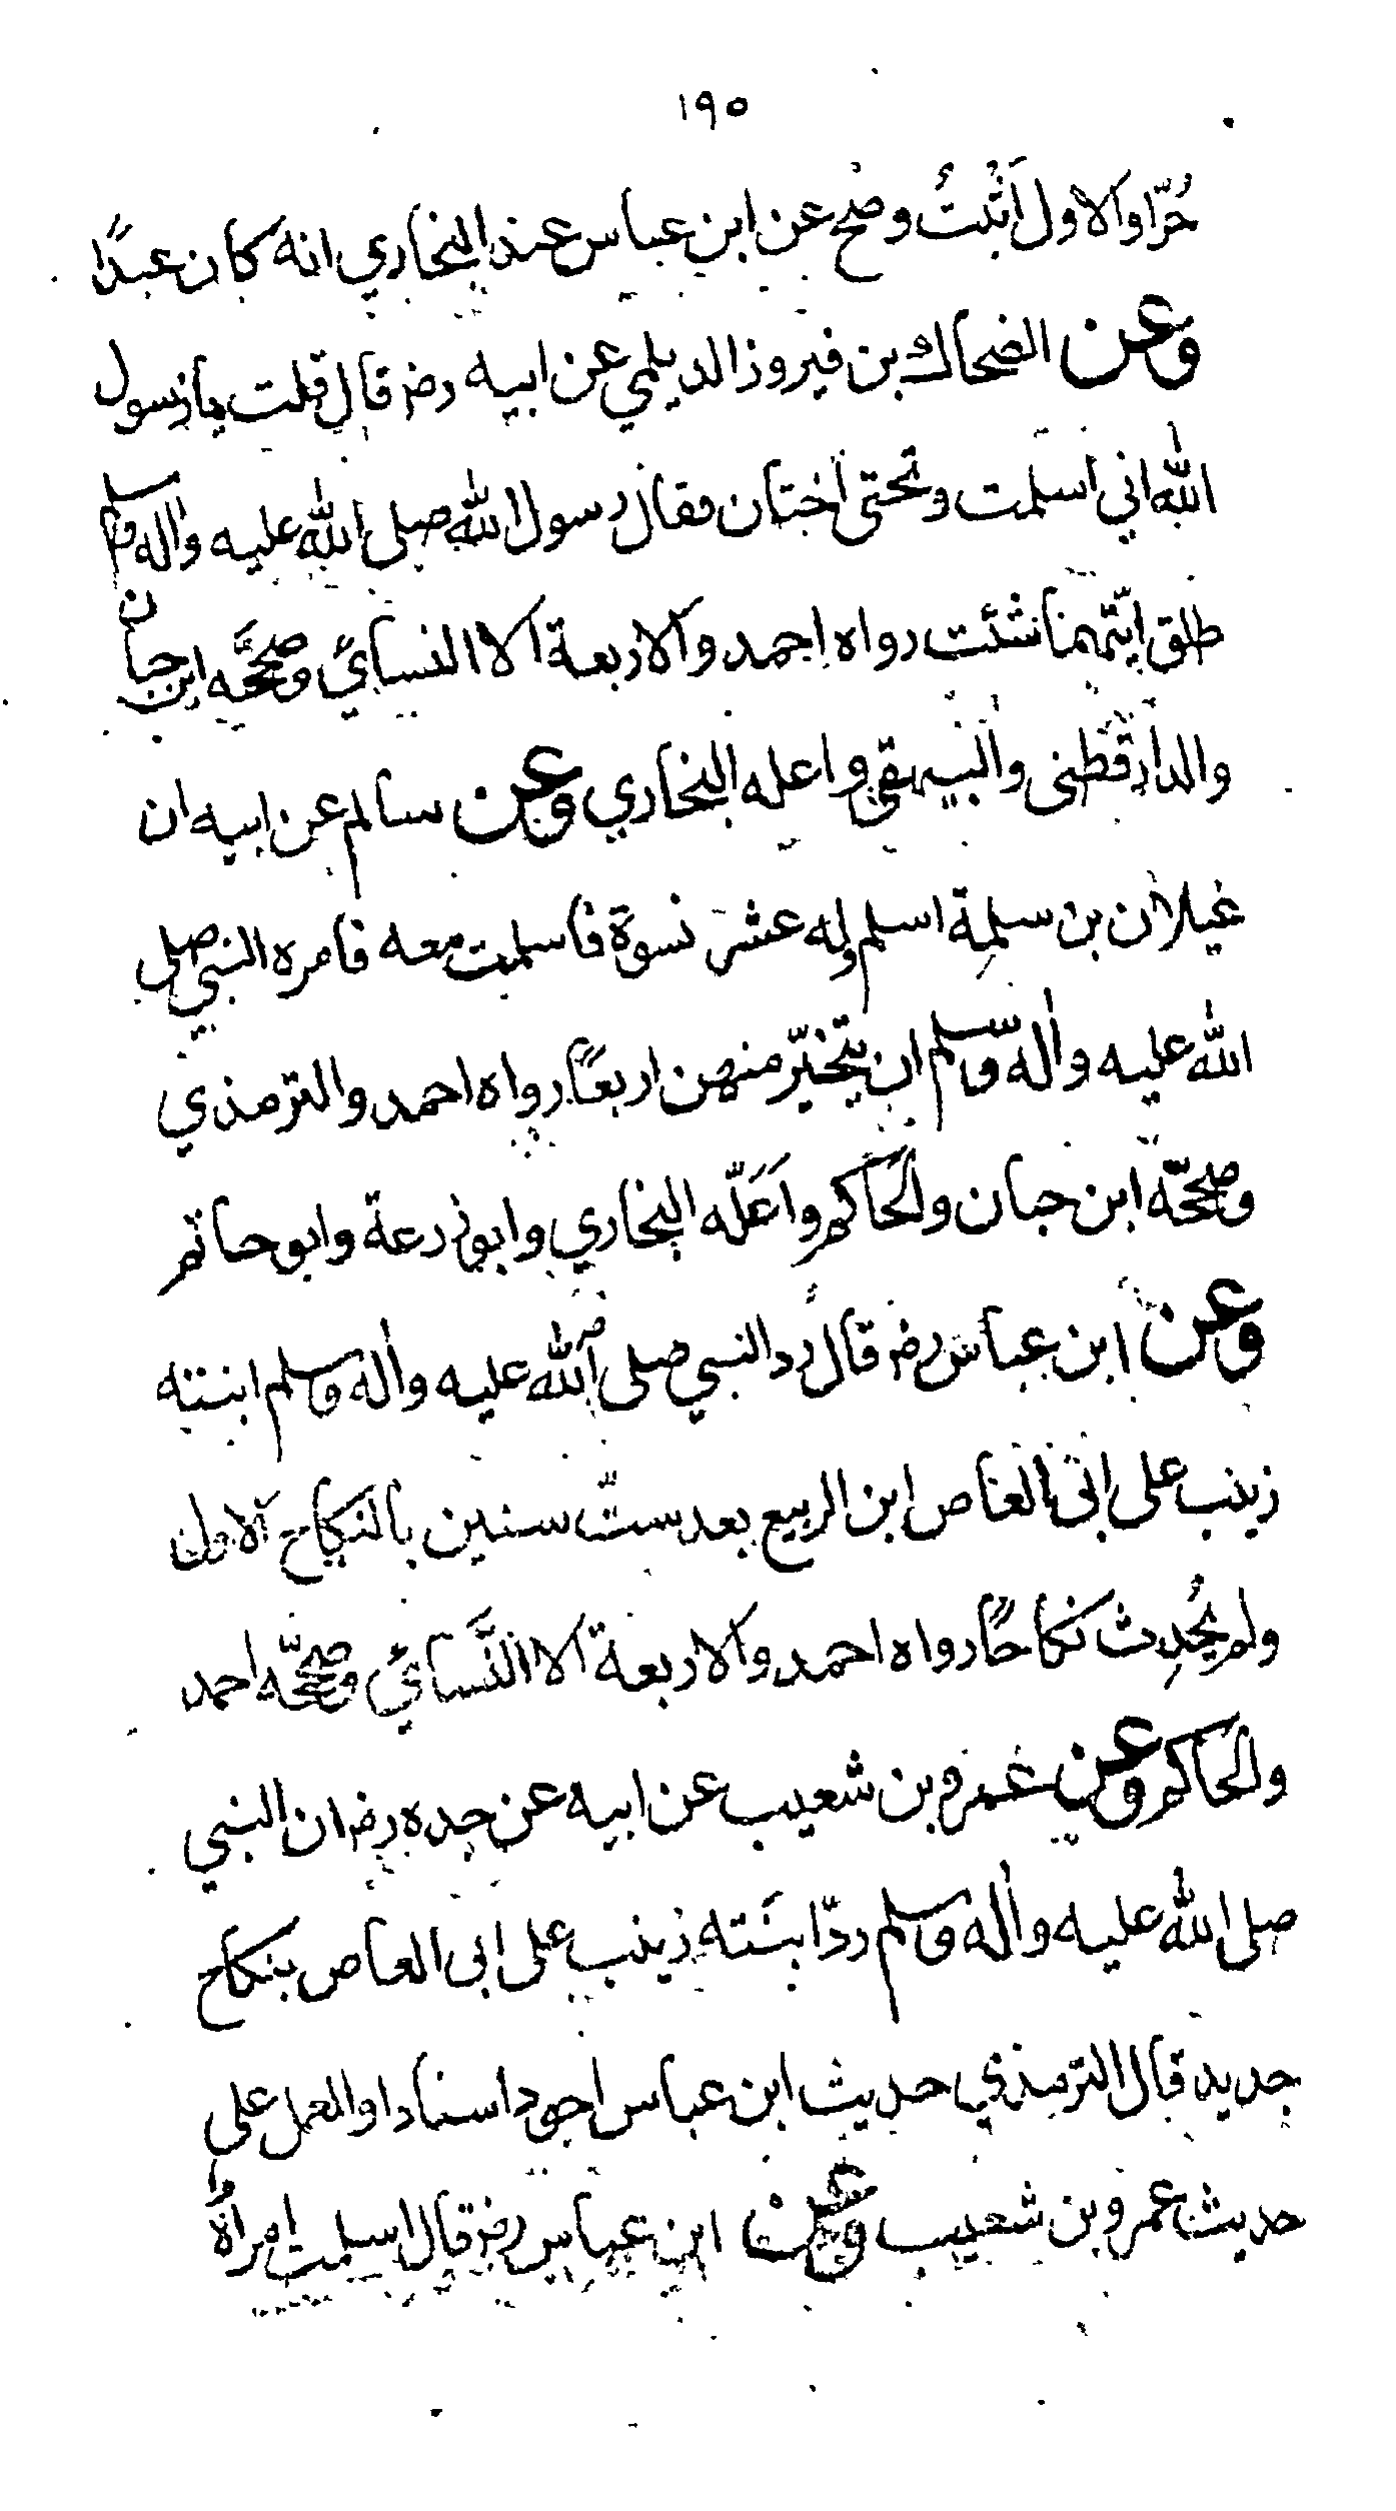 ١٩٥
حُرّا والاول اَثْبَتُ وصْح عن ابن عباس عند البخاري انه كان عبدًا
وعن الضحاك بن فيروز الديلمي عن ابيه رضـ قال قلت يا رسول
الله اني اسلمت وتحتى اختان فقال رسول الله صلى الله عليه واله وسلم
طلق ايّتهما شئت رواه احمد والاربعة الا النسايَ وصحَّحه ابن حبان
والدارقطنى والبيهقي واعله البخاري وعن سالم عن ابيه ان
غيلان بن سلمة اسلم وله عشر نسوة فاسلمت معه فامره النبي صلى
الله عليه واله وسلم ان يتخيّر منهن اربعًا رواه احمد والترمذي
وصححّه ابن حبان والحاكم واَعَلّه البخاري وابو زرعة وابو حاتم
وعن ابن عباس رضـ قال رد النبي صلى الله عليه واله وسلم ابنته
زينب على ابى العاص ابن الربيع بعد ستّ سنين بالنكاح الاول
ولم يُحدِث نكاحًا رواه احمد والاربعة الا النَّسايَ وصحّحه احمد
والحاكم وعن عمرو بن شعيب عن ابيه عن جده رضـ ان النبي
صلى الله عليه واله وسلم ردّ ابنَته زينب على ابى العاص بنكاح
جديد قال الترمذي حديث ابن عباس اجود اسنادا والعمل على
حديث عمرو بن شعيب وعن ابن عباس رضـ قال اسلمت امراةٌ